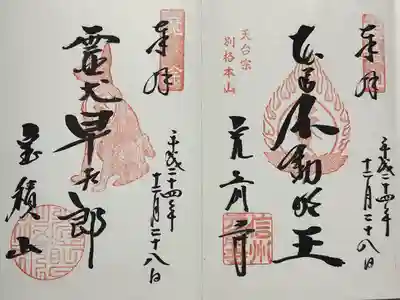 奉拝
天台宗
別格本山
本尊不動明王
光前寺
平成二十四年
十二月二十八日
信州
奉拝
霊犬早太郎
宝積山
平成二十四年
十二月二十八日